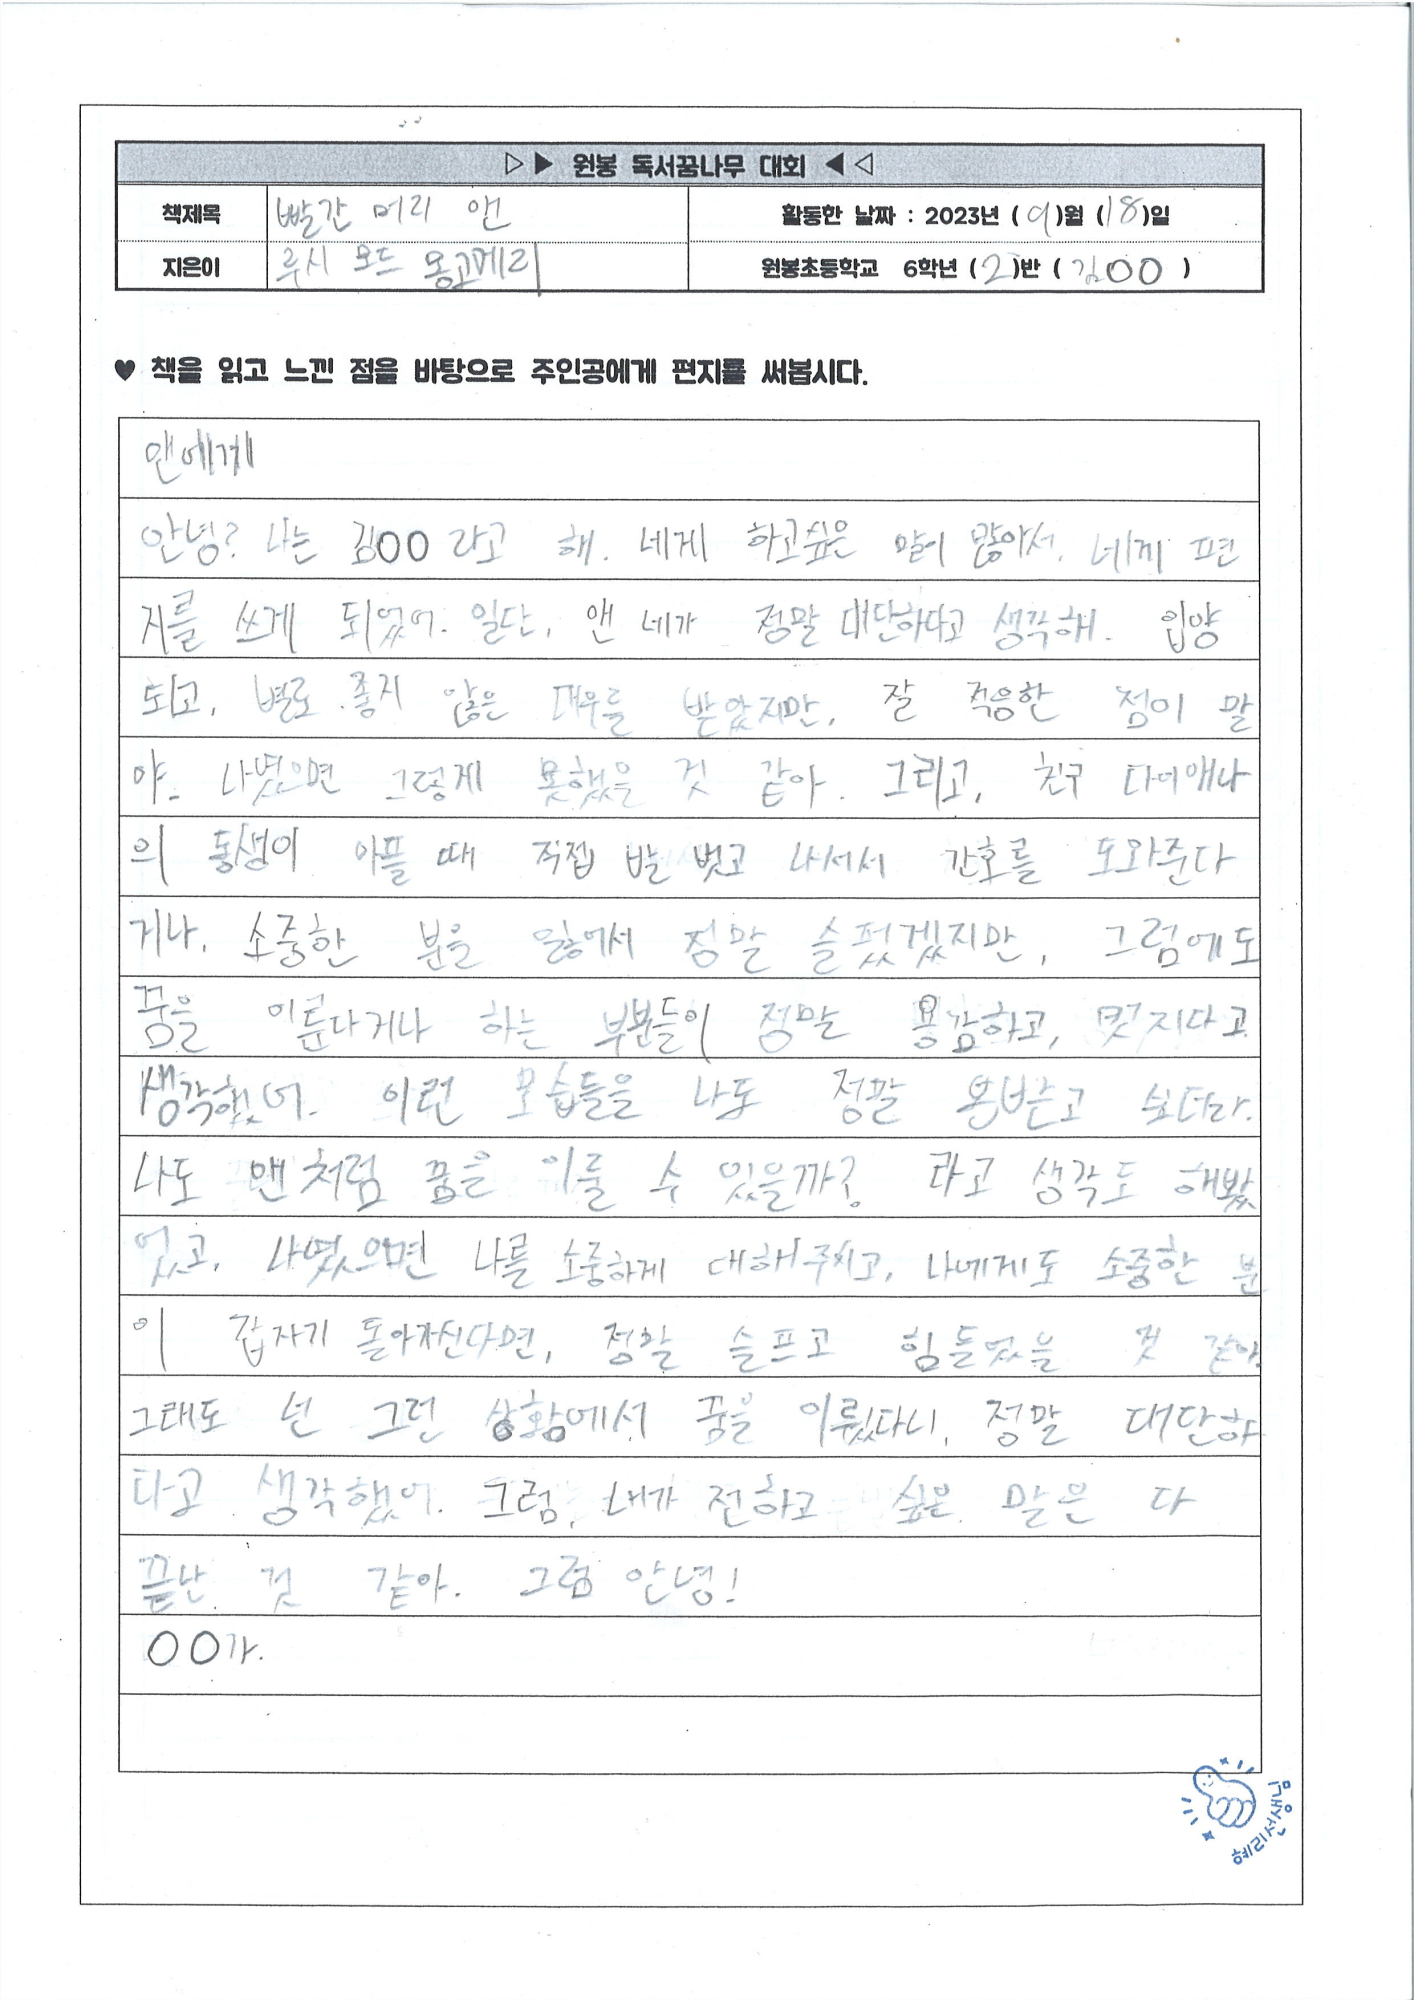 ▷▶ 원봉 독서꿈나무 대회 ◀◁
책제목 빨간 머리 앤 활동한 날짜 : 2023년 (9)월 (18)일
지은이 루시 모드 몽고메리 원봉초등학교 6학년 (2)반 (김OO)
♥ 책을 읽고 느낀 점을 바탕으로 주인공에게 편지를 써봅시다.
앤에게
안녕? 나는 김OO라고 해. 네게 하고싶은 말이 많아서, 네게 편
지를 쓰게 되었어. 일단, 앤 네가 정말 대단하다고 생각해. 입양
되고, 별로 좋지 않은 대우를 받았지만, 잘 적응한 점이 말
야. 나였으면 그렇게 못했을 것 같아. 그리고, 친구 다이애나
의 동생이 아플 때 직접 발 벗고 나서서 간호를 도와준다
거나, 소중한 분을 잃어서 정말 슬펐겠지만, 그럼에도
꿈을 이룬다거나 하는 부분들이 정말 용감하고, 멋지다고
생각했어. 이런 모습들을 나도 정말 본받고 싶더라.
나도 앤처럼 꿈을 이룰 수 있을까? 라고 생각도 해봤
었고, 나였으면 나를 소중하게 대해주시고, 나에게도 소중한 분
이 갑자기 돌아가신다면, 정말 슬프고 힘들었을 것 같아.
그래도 넌 그런 상황에서 꿈을 이뤘다니, 정말 대단하
다고 생각했어. 그럼, 내가 전하고 싶은 말은 다
끝난 것 같아. 그럼 안녕!
OO가.
혜리서선생님